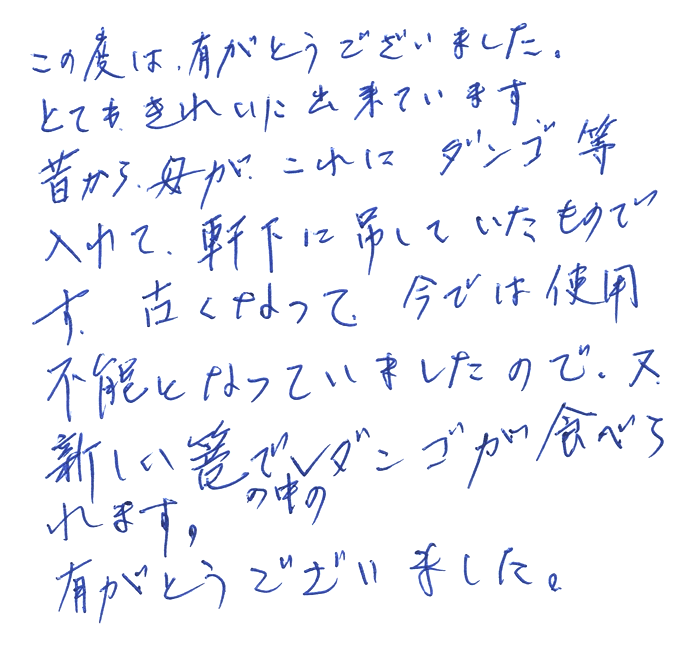 この度は、有がとうございました。
とても、きれいに出来ています
昔から、母が、これに ダンゴ等
入れて、軒下に吊していたもので
す。 古くなって、今では使用
不能となっていましたので、又
新しい篭での中のダンゴが食べら
れます。
有がとうございました。